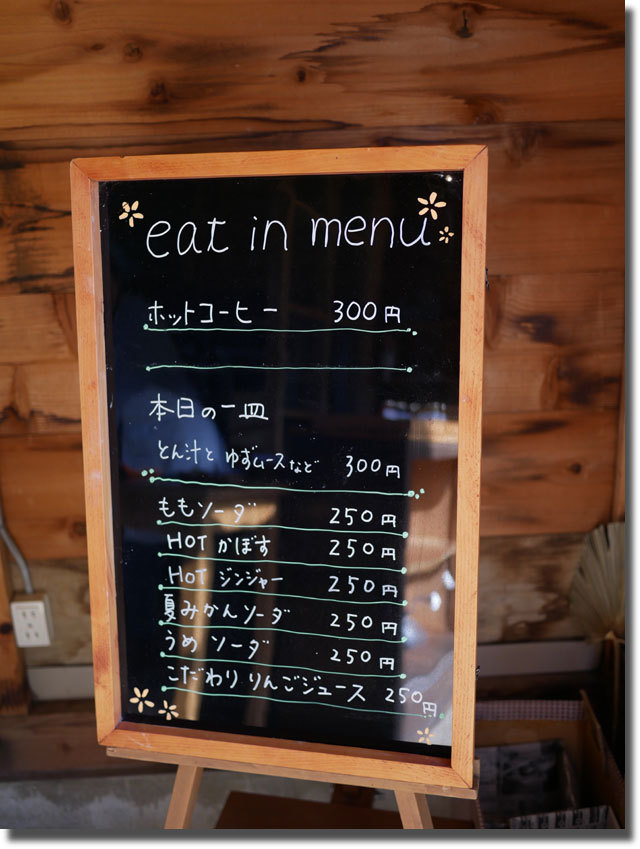 eat in menu
ホットコーヒー 300円
本日の一皿
とん汁と ゆずムースなど 300円
ももソーダ 250円
HOT かぼす 250円
HOT ジンジャー 250円
夏みかんソーダ 250円
うめ ソーダ 250円
こだわり りんごジュース 250円